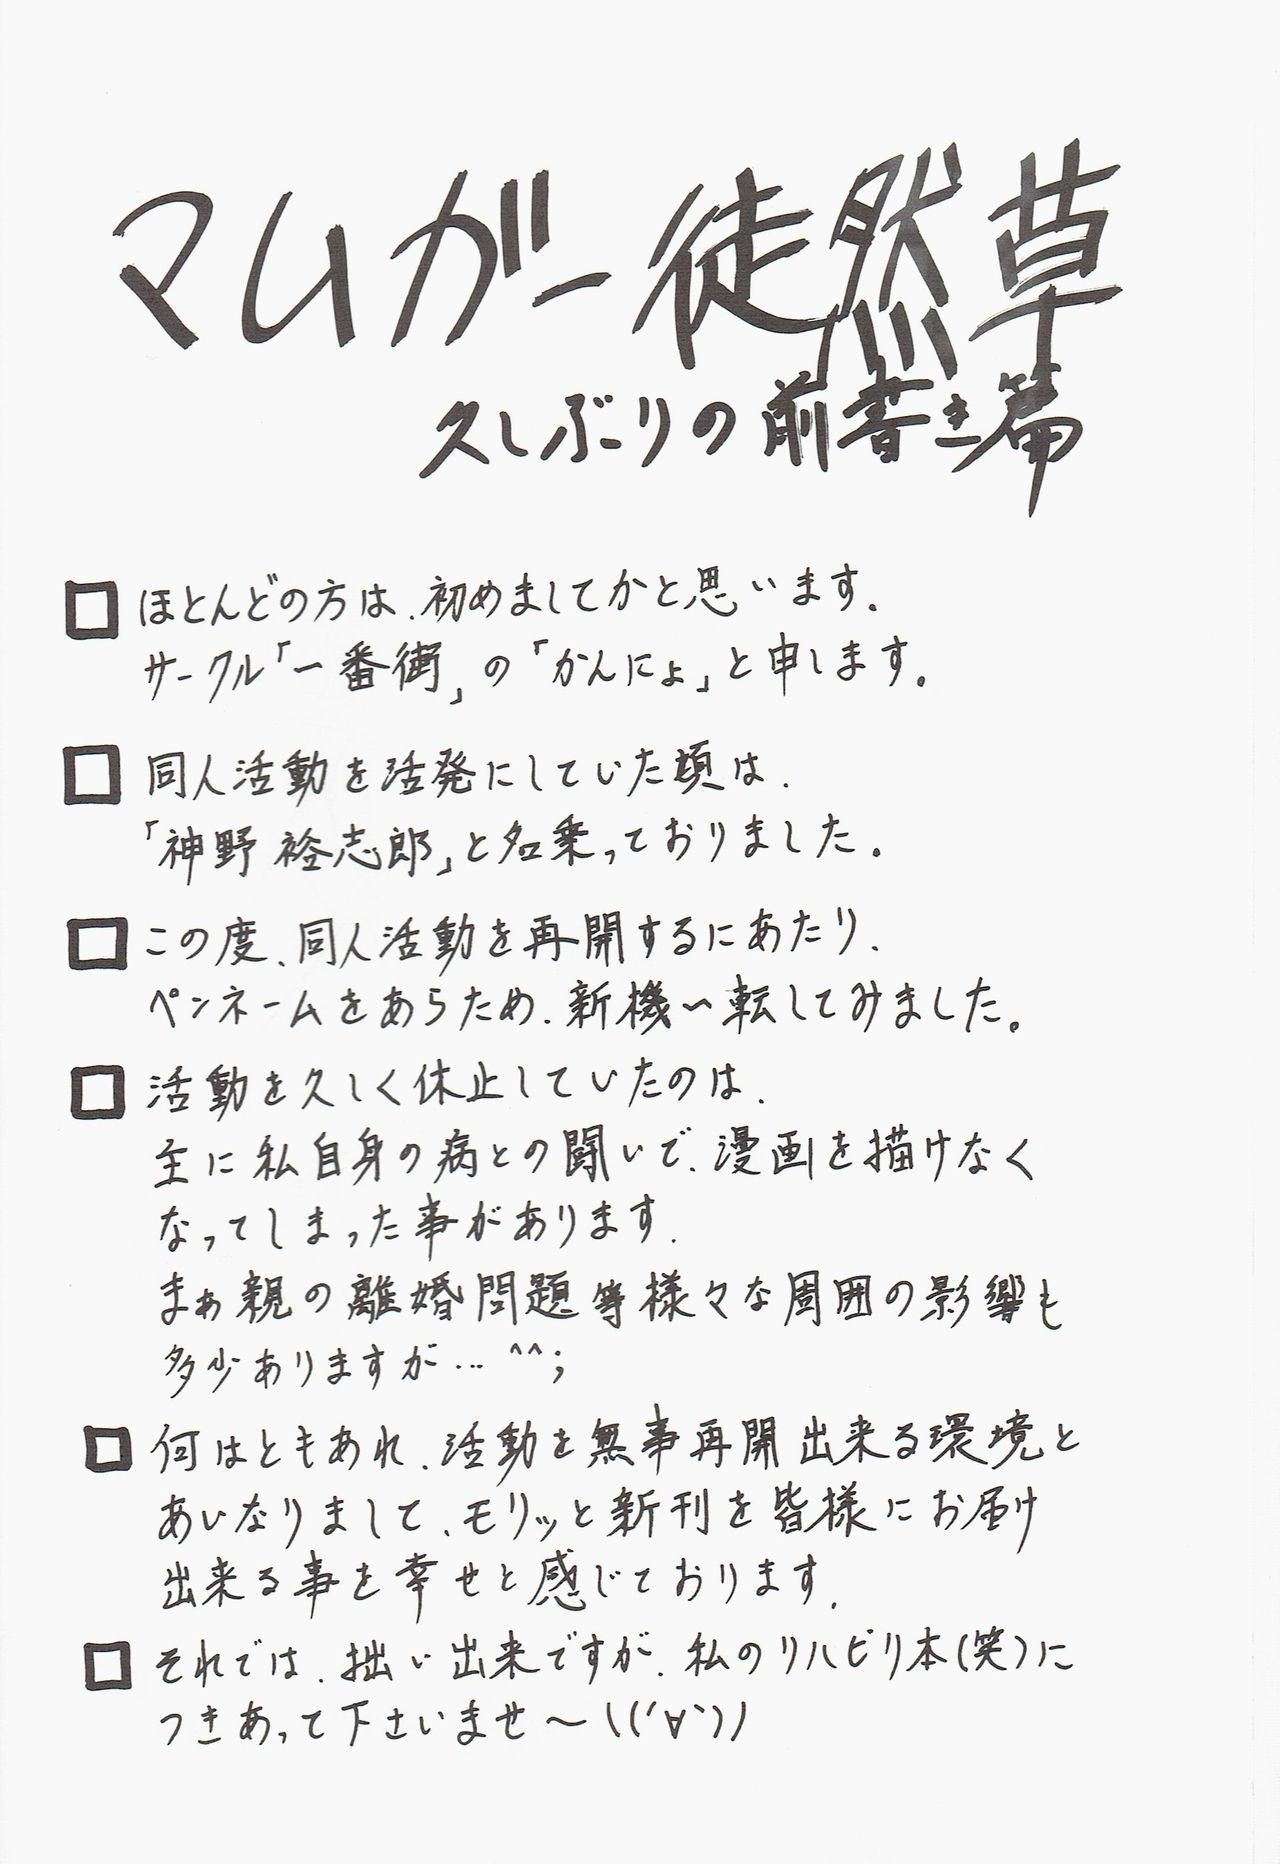 マムガー徒然草
久しぶりの前書き篇
□ ほとんどの方は、初めましてかと思います。
サークル「一番街」の「かんにょ」と申します。
□ 同人活動を活発にしていた頃は、
「神野 裕志郎」と名乗っておりました。
□ この度、同人活動を再開するにあたり、
ペンネームをあらため、新機一転してみました。
□ 活動を久しく休止していたのは、
主に私自身の病との闘いで、漫画を描けなく
なってしまった事があります。
まぁ親の離婚問題等様々な周囲の影響も
多少ありますが… ^^;
□ 何はともあれ、活動を無事再開出来る環境と
あいなりまして、モリッと新刊を皆様にお届け
出来る事を幸せと感じております。
□ それでは、拙い出来ですが、私のリハビリ本(笑)に
つきあって下さいませ～\(('∀`))ﾉ